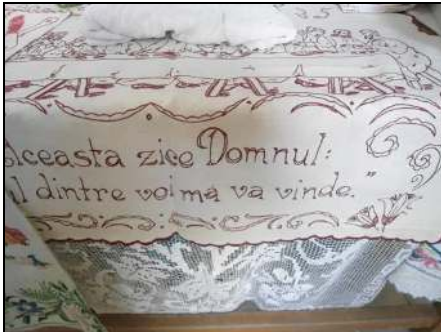 aceasta zice Domnul:
dintre voi ma va vinde."